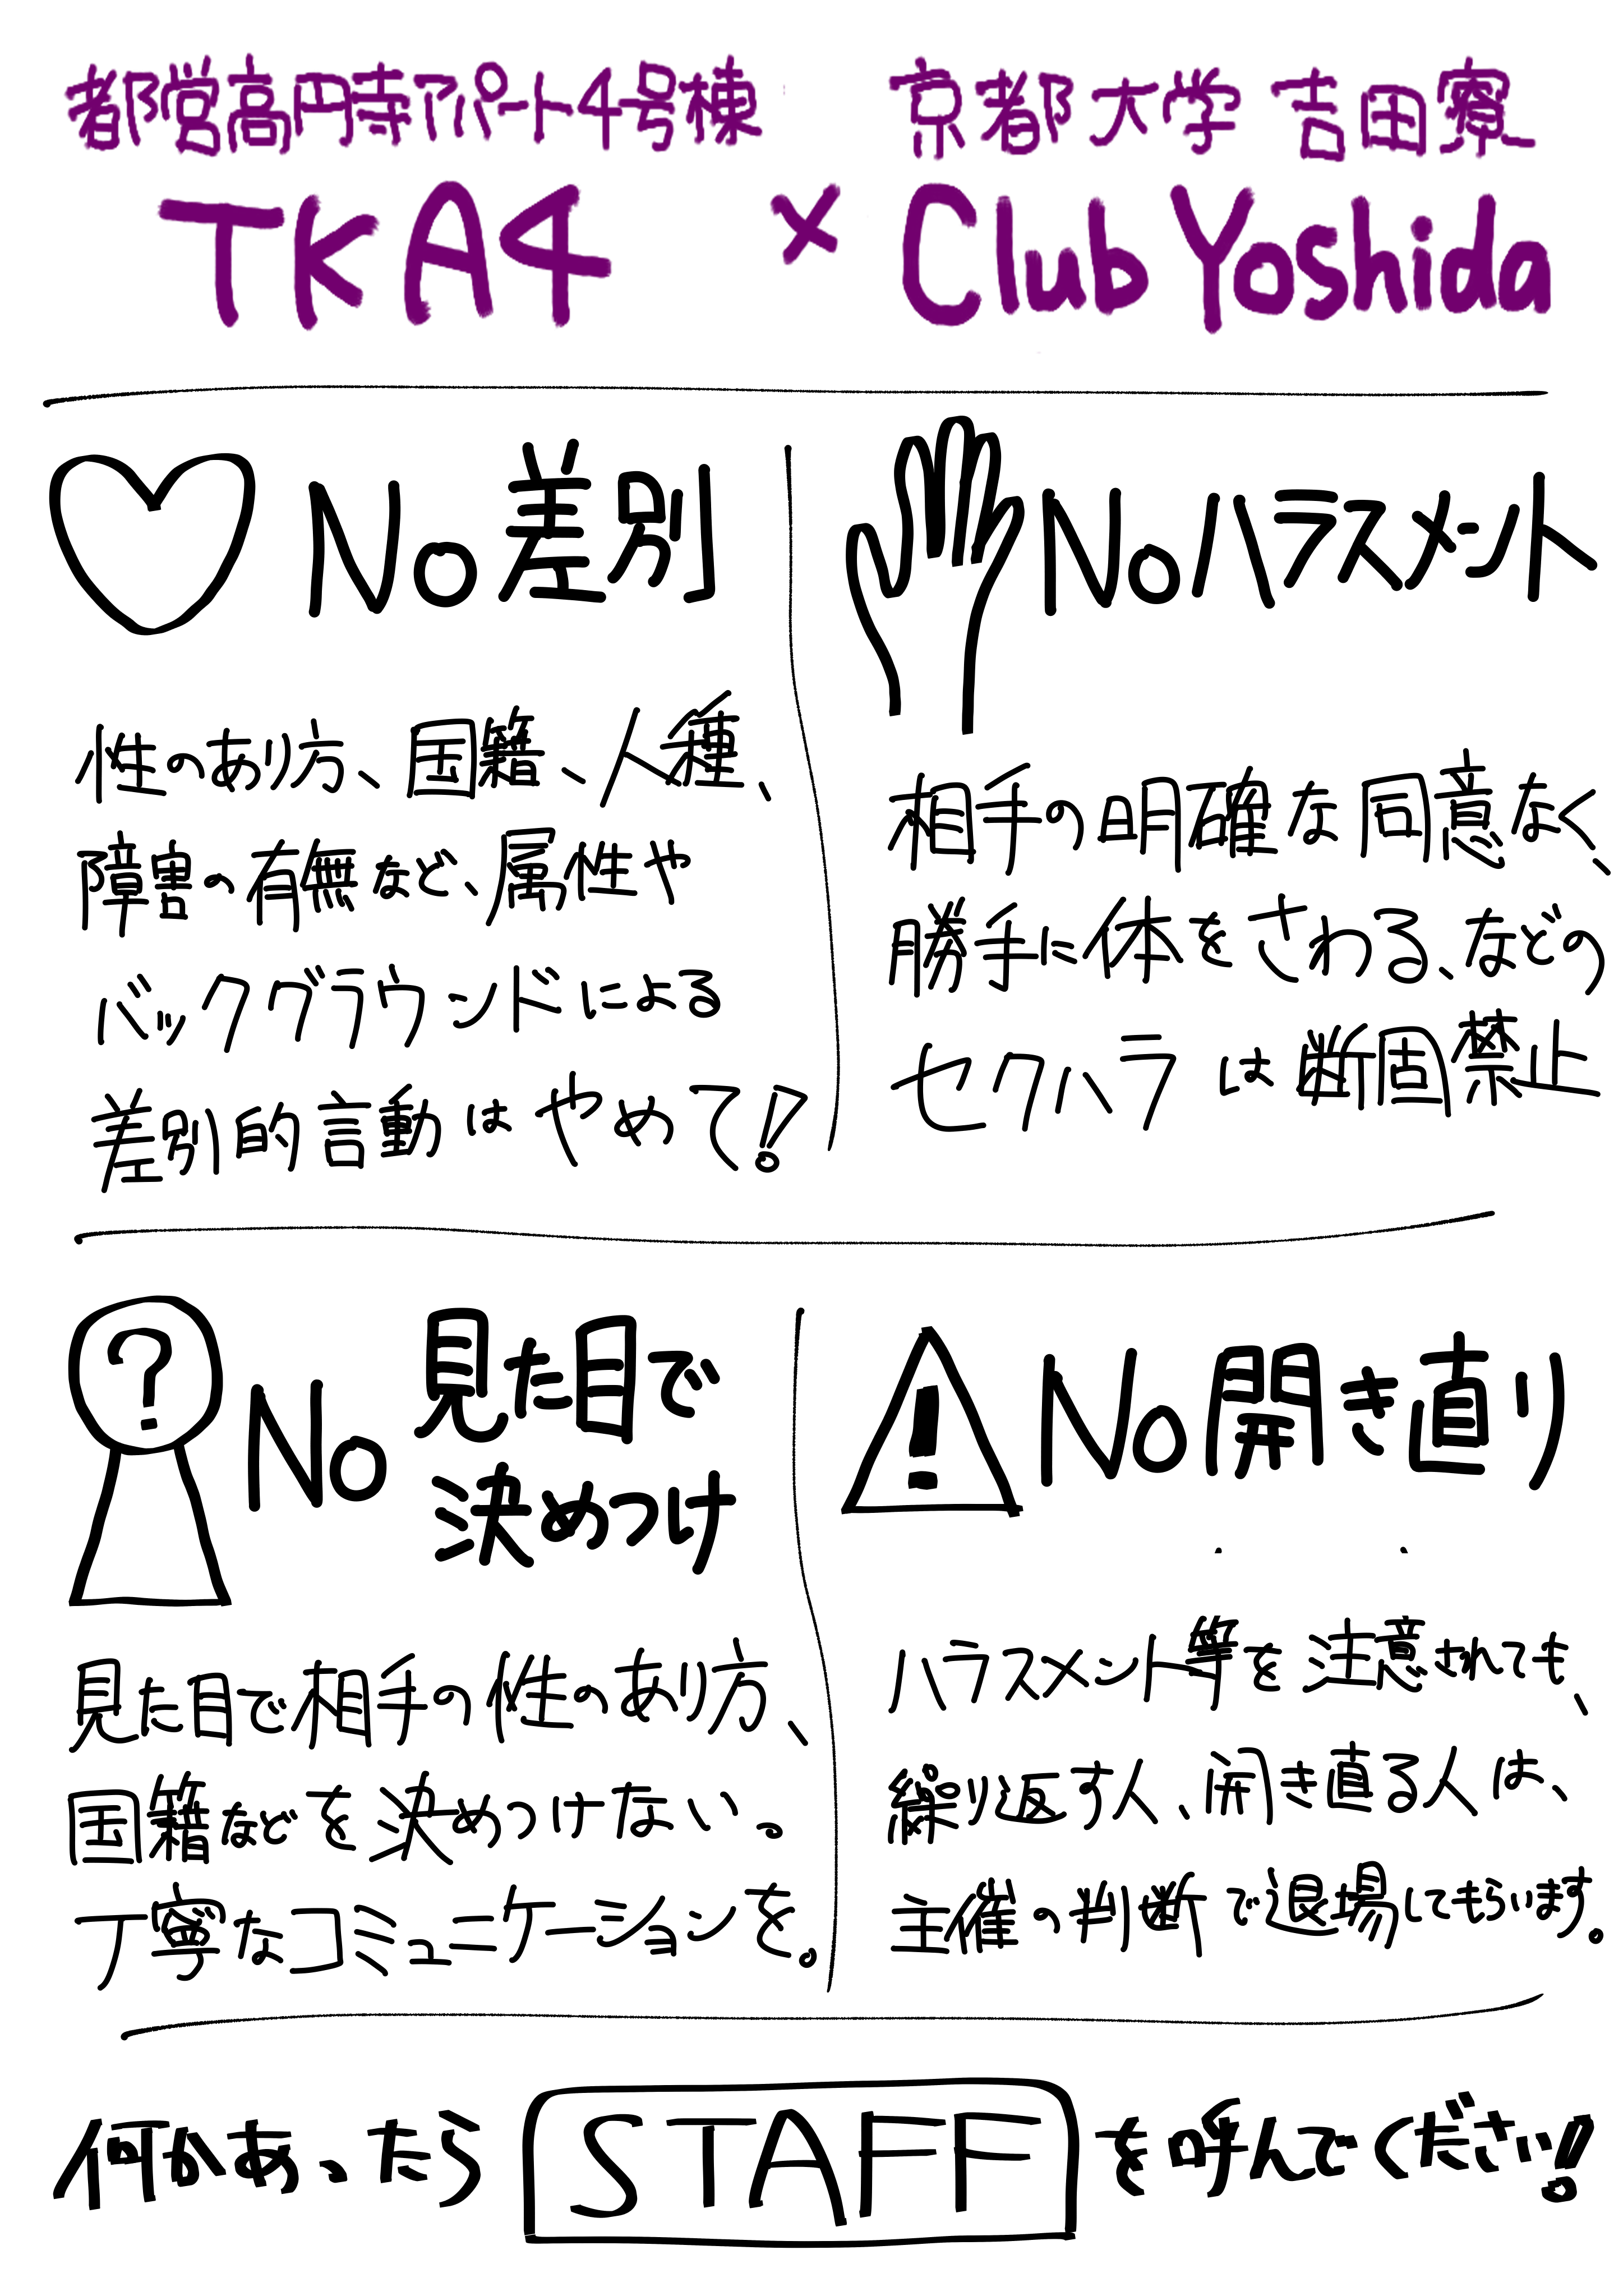 都営高円寺アパート4号棟
TKA4
×
京都大学 吉田寮
Club Yoshida
No差別
性のあり方、国籍、人種、
障害の有無など、属性や
バックグラウンドによる
差別的言動はやめて!
Noハラスメント
相手の明確な同意なく、
勝手に体をさわる、などの
セクハラは断固禁止
?
No
見た目で
決めつけ
見た目で相手の性のあり方、
国籍などを決めつけない。
丁寧なコミュニケーションを。
!
No開き直り
ハラスメント等を注意されても、
繰り返す人、開き直る人は、
主催の判断で退場してもらいます。
何かあったら STAFF を呼んでください!